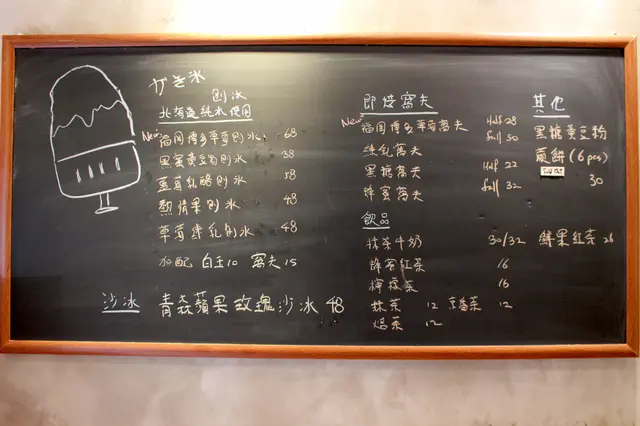 かき氷
刨冰
北海道純水使用
New 福岡博多草莓刨冰 68
黑蜜黃豆粉刨冰 38
藍莓乳酪刨冰 58
熱情果刨冰 48
草莓煉乳刨冰 48
加配 白玉10 窩夫15
沙冰 青森蘋果玫瑰沙冰 48
即燒窩夫
New 福岡博多草莓窩夫 Half 28
full 50
煉乳窩夫
黑糖窩夫 Half 22
蜂蜜窩夫 full 32
飲品
抹茶牛奶 30/32
蜂蜜紅茶 16
檸檬茶 16
抹茶 12 京番茶 12
焙茶 12
其他
黑糖黃豆粉
煎餅(6pcs)
30
鮮果紅茶 26